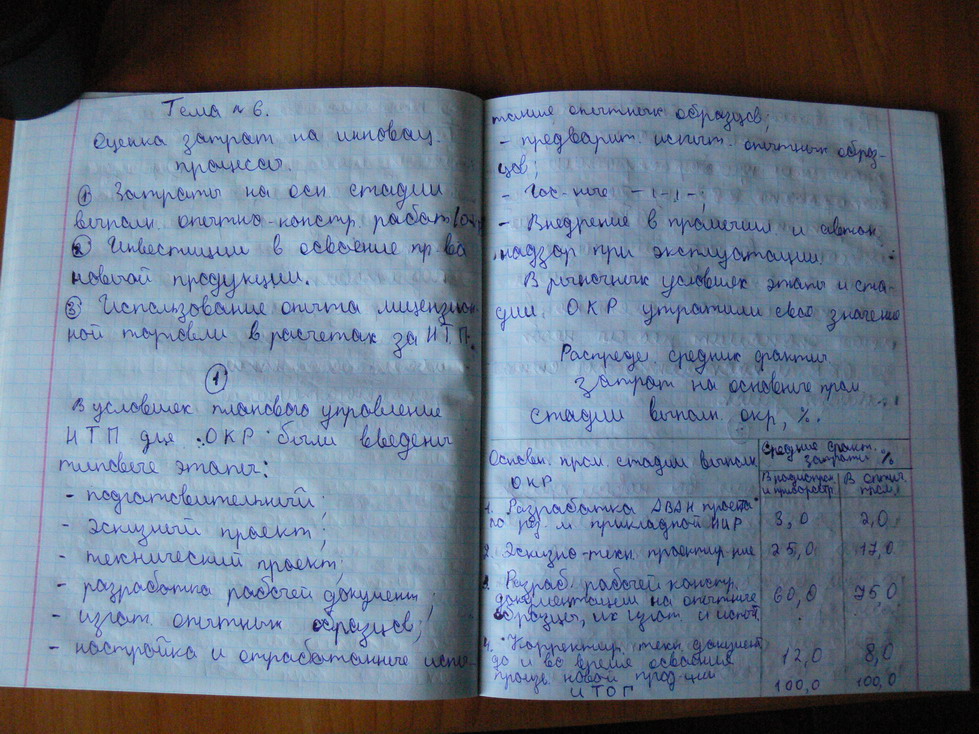 Тема № 6.
Оценка затрат на инновац.
процессы.
① Затраты на осн. стадии
выполн. опытно-констр. работ (окр)
② Инвестиции в освоение пр-ва
новой продукции.
③ Использование опыта лицензион-
ной торговли в расчетах за НТП.
①
В условиях планового управления
НТП для ОКР были введены
типовые этапы:
- подготовительный;
- эскизный проект;
- технический проект;
- разработка рабочей документ;
- изгот. опытных образцов;
- настройка и отработанные испы-
тания опытных образцов;
- предварит. испыт. опытных образ-
цов;
- Гос-ные -ı-ı-;
- Внедрение в промышл и авток.
надзор при эксплуатации.
В рыночных условиях этапы и ста-
дии ОКР утратили свое значение
Распредел. средних фактич.
затрат на основные пром.
стадии выполн. окр, %.
Основн. пром. стадии выполн.
ОКР
Средние факт.
затраты %
В радиостроен
и приборостр
В оптич.
промыш
1. Разработка АВАН проекта
по рез-м прикладной НИР
3,0 2,0
2. Эскизно-техн. проектир-ние 25,0 17,0
3. Разраб. рабочей констр.
документации на опытные
образцы, их изгот. и испыт.
60,0 75 0
4. Корректир. техн. документ.
до и во время освоения
произв. новой прод-ции
12,0 8,0
ИТОГ 100,0 100,0